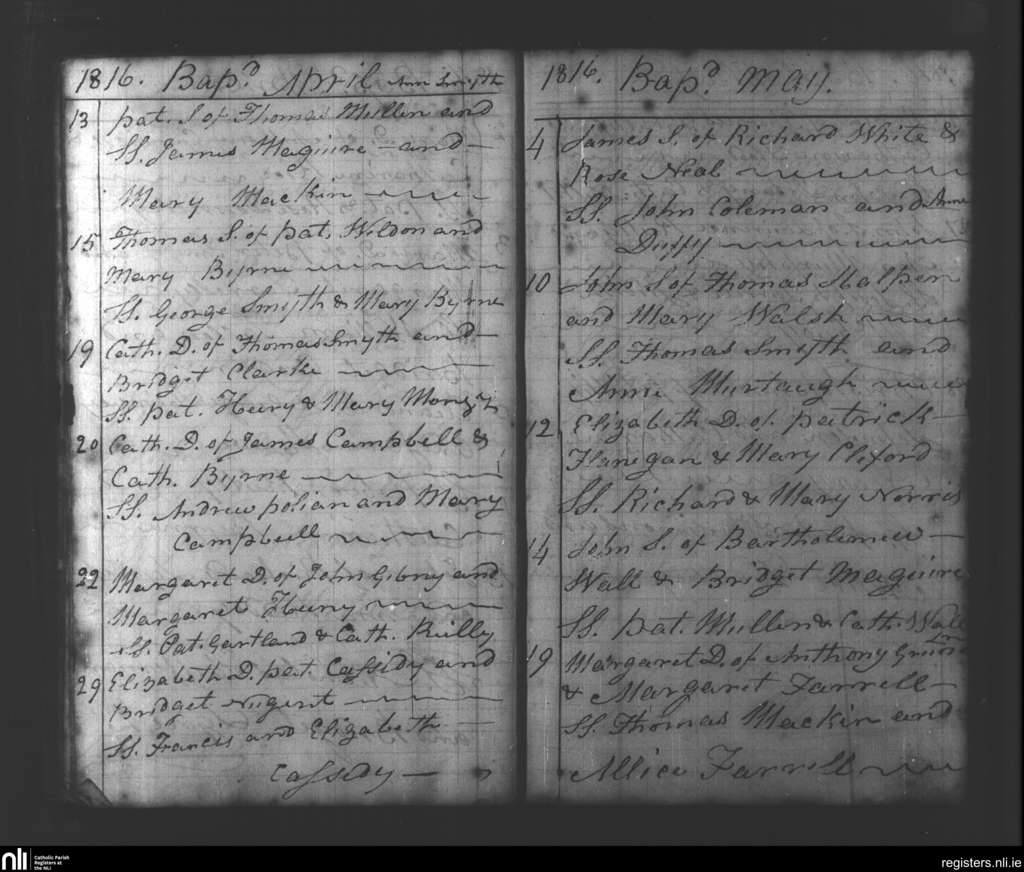 1816. Bapd. April Ann Smyth
13 pat. S. of Thomas Mullen and
SS. James Maguire and
Mary Mackin
15 Thomas S. of pat. Weldon and
Mary Byrne
SS. George Smyth & Mary Byrne
19 Cath. D. of Thomas Smyth and
Bridget Clarke
SS. pat. Heery & Mary
20 Cath. D. of James Campbell &
Cath. Byrne
SS. Andrew polian and Mary
Campbell
22 Margaret D. of John Gibny and
Margaret Heery
SS. Pat. Gartland & Cath. Reilly
29 Elizabeth D. pat. Cassidy and
Bridget Nugent
SS. Francis and Elizabeth
Cassidy
1816. Bapd. May.
4 James S. of Richard White &
Rose Neal
SS. John Coleman and Anne
Duffy
10 John S. of Thomas Halpen
and Mary Walsh
SS. Thomas Smyth and
Anne Murtaugh
12 Elizabeth D. of patrick
Flanigan & Mary Cliford
SS. Richard & Mary Norris
14 John S. of Bartholemew
Wall & Bridget Maguire
SS. pat. Mullen & Cath. Wall
19 Margaret D. of Anthony
& Margaret Farrell
SS. Thomas Mackin and
Allice Farrell
nli Catholic Parish
Registers at
the NLI
registers.nli.ie